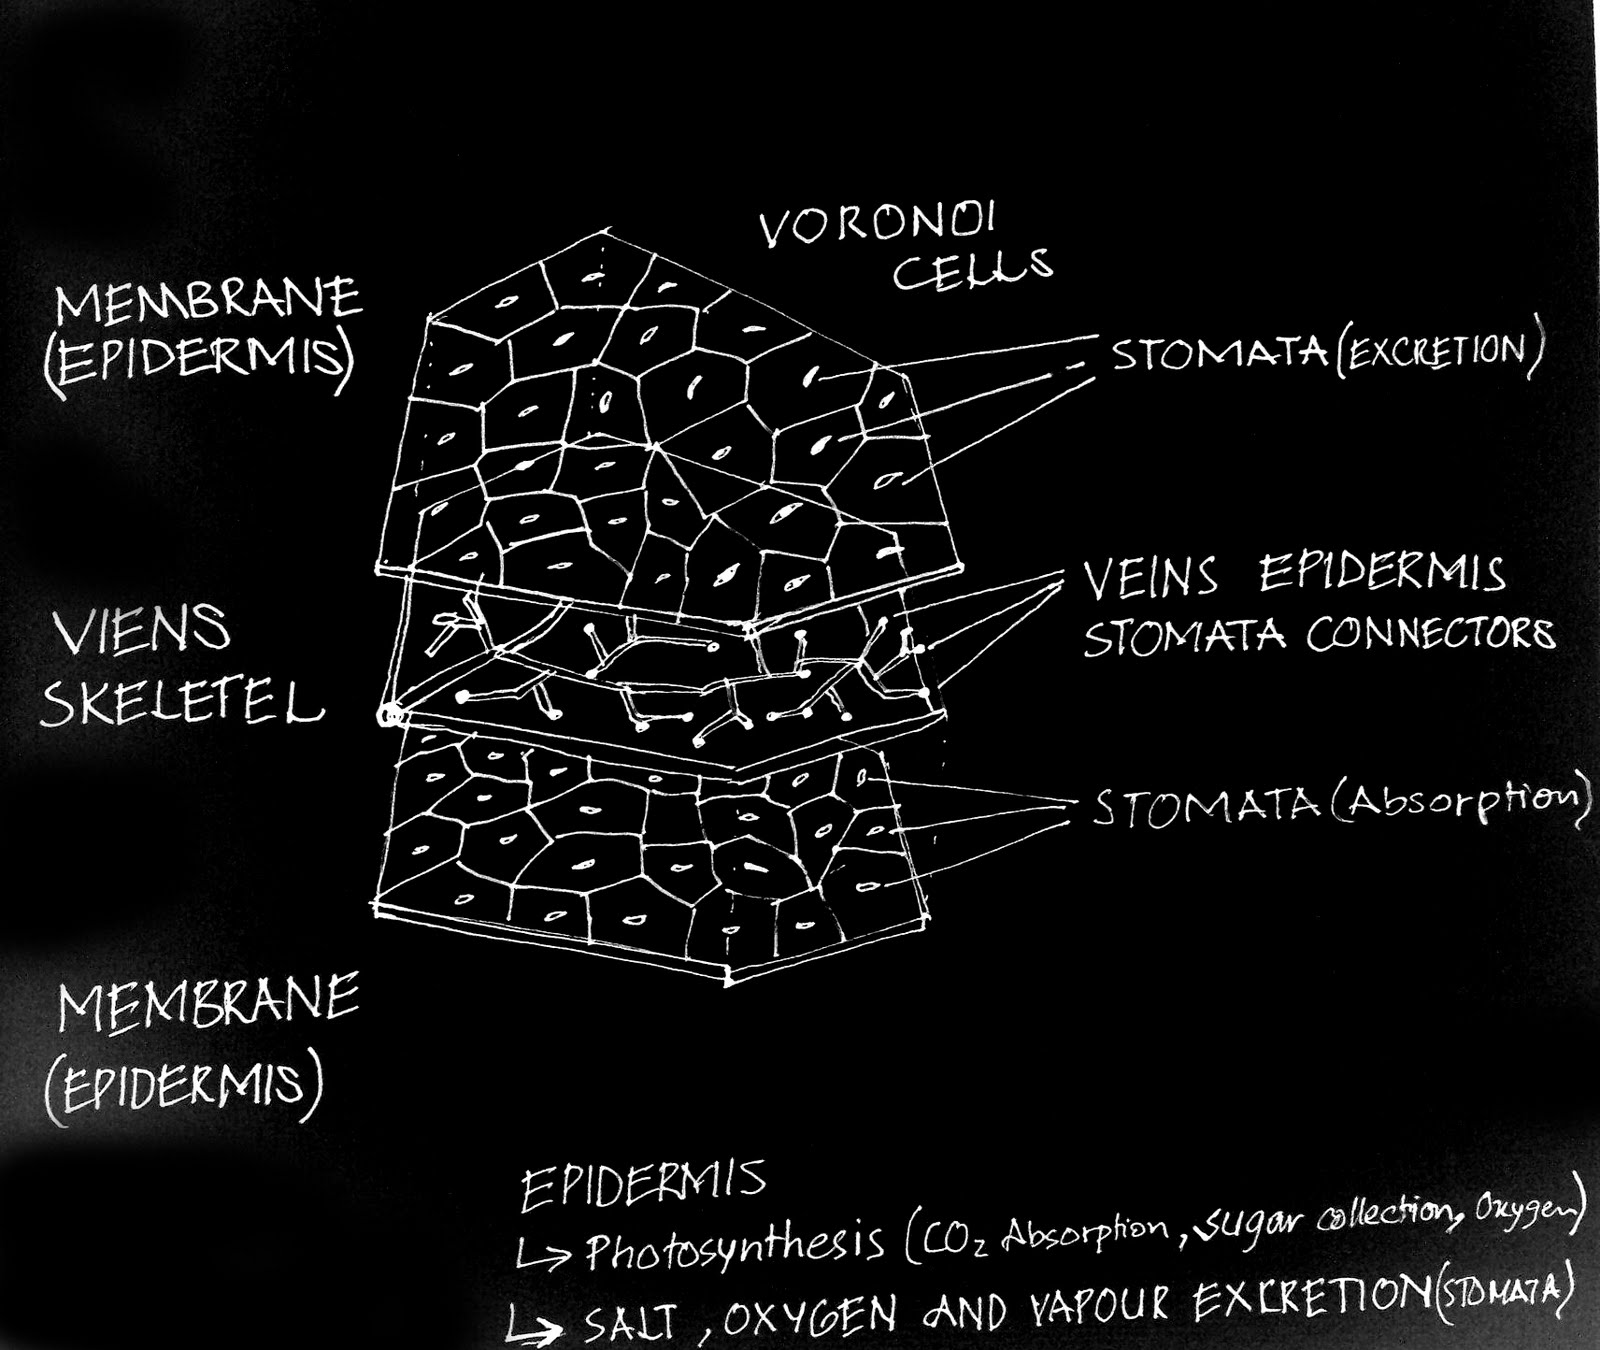 VORONOI
CELLS
MEMBRANE
(EPIDERMIS)
STOMATA (EXCRETION)
VEINS EPIDERMIS
STOMATA CONNECTORS
VIENS
SKELETEL
STOMATA (Absorption)
MEMBRANE
(EPIDERMIS)
EPIDERMIS
↳ Photosynthesis (CO₂ Absorption, sugar collection, Oxygen)
↳ SALT, OXYGEN AND VAPOUR EXCRETION (STOMATA)